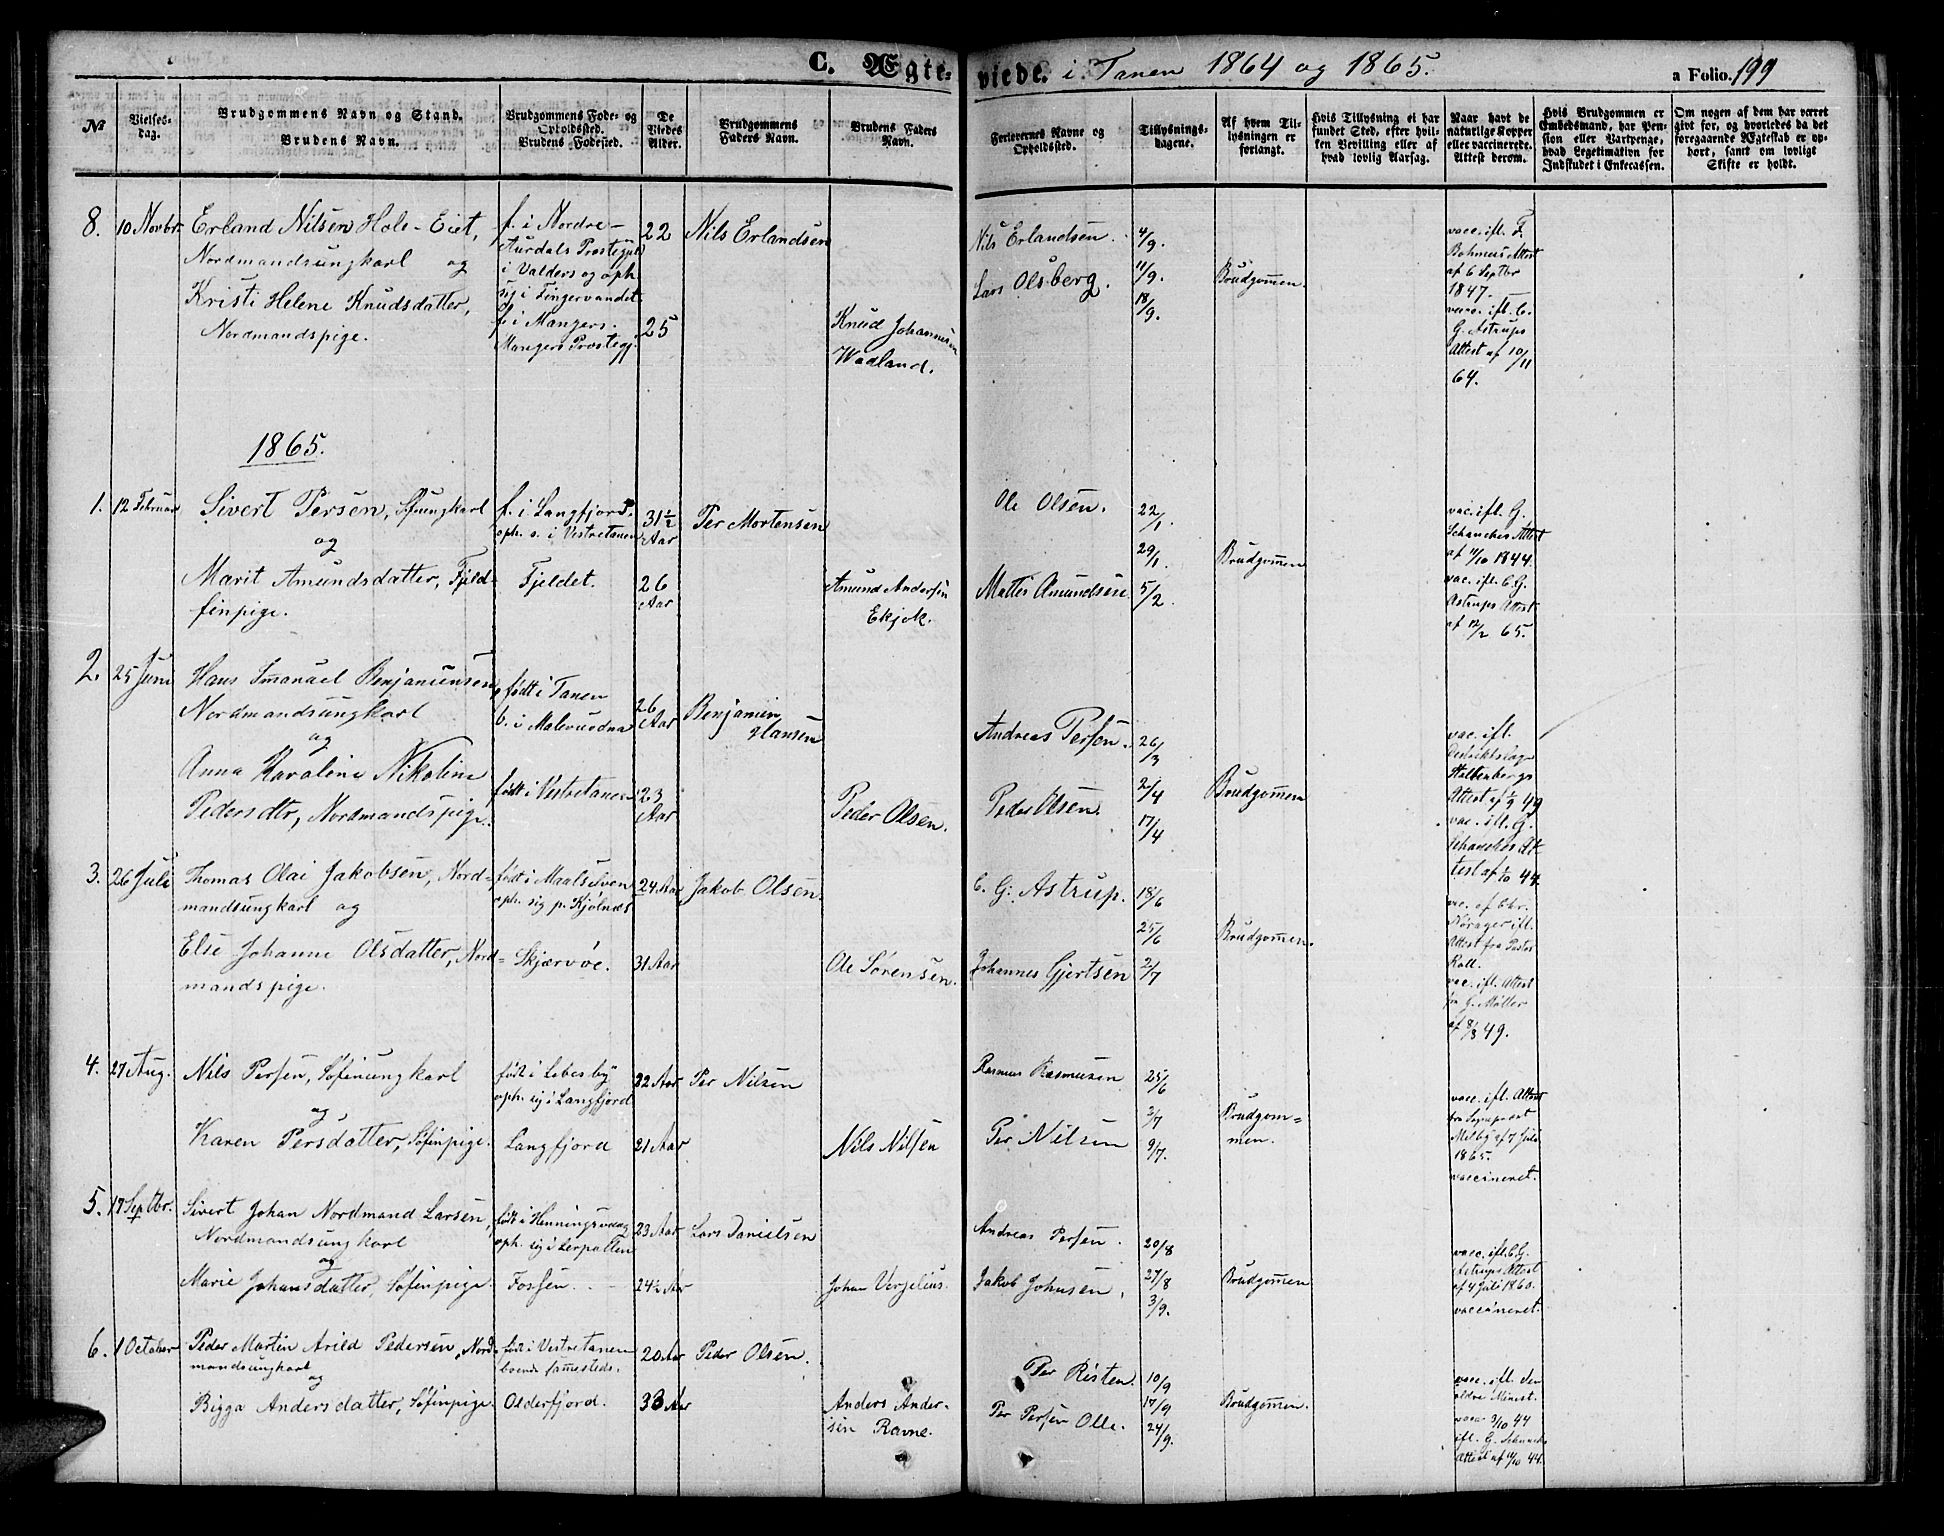 C. Ægteviede. i Tanen 1864 og 1865. a Folio. 199
№
Vielses-
dag.
Brudgommens Navn og Stand.
Brudens Navn.
Brudgommens Føde- og
Opholdssted.
Brudens Fødested.
De
Viedes
Alder.
Brudgommens
Faders Navn.
Brudens Faders
Navn.
Forlovernes Navne og
Opholdssted.
Tillysnings-
dagene.
Af hvem Til-
lysningen er
forlangt.
Hvis Tillysning ei har
fundet Sted, efter hvil-
ken Bevilling eller af
hvad lovlig Aarsag.
Naar havt de
naturlige Kopper
eller vaccinerede.
Attest derom.
Hvis Brudgommen er
Embedsmand, har Pen-
sion eller Vartpenge,
hvad Legetimation for
Indskudet i Enkecassen.
Om nogen af dem har været
givt før, og hvorledes da det
foregaaende Ægteskab er op-
hørt, samt om lovligt
Skifte er holdt.
8. 10 Novbr. Erland Nilsen Hole-Eiet,
Nordmandsungkarl og
Kristi Helene Knudsdatter,
Nordmandspige.
f. i Nordre-
Aurdals Prestegjeld
i Valders og oph.
sig i Fingervandet.
f. i Mangers.
Mangers Prestegj.
22
25
Nils Erlandsen
Knud Johannesen
Wadland.
Nils Erlandsen.
Lars Olsberg.
4/9.
11/9.
18/9.
Brudgommen.
vacc. ifl. F.
Bohmers Attest
af 6 Septbr
1847.
vacc. ifl. C.
G. Astrups
Attest af 10/11
64.
1865.
1. 12 Februar Sivert Persen, Søfinungkarl
og
Marit Amundsdatter, Fjeld-
finpige.
f. i Langfjord,
oph. s. i Vestretanen
Fjeldet.
31½
Aar
26
Aar
Per Mortensen
Amund Andersen
Ekjok.
Ole Olsen.
Mattis Amundsen
22/1.
29/1.
5/2.
Brudgommen
vac. ifl. G.
Schanches Attest
af 11/10 1844.
vac. ifl. C. G.
Astrups Attest
af 12/2 65.
2. 25 Juni Hans Imanuel Benjaminsen,
Nordmandsungkarl
og
Anna Karoline Nikoline
Pedersdtr, Nordmandspige.
født i Tanen
b. i Malevuodna
født i Vestretanen
26
Aar
23
Aar
Benjamin
Hansen
Peder Olsen.
Andreas Persen.
Peder Olsen.
26/3
2/4
17/4
Brudgommen
vac. ifl.
Destriktslæge
Holtenbergs
Attest af 1/9 49
vac. ifl. G.
Schanches At-
test af 1/10 44.
3. 26 Juli Thomas Olai Jakobsen, Nord-
mandsungkarl og
Else Johanne Olsdatter, Nord-
mandspige.
født i Maalselven
oph. sig p. Kjølnæs
Skjærvøe.
24 Aar
31 Aar
Jakob Olsen.
Ole Sørensen.
C. G. Astrup.
Johannes Gjertsen
18/6
25/6
2/7
Brudgommen.
vac. af Chr.
Nørager ifl.
Attest fra Pastor
Koll.
vac. ifl. Attest
fra G. Møller
af 8/8 49.
4. 27 Aug. Nils Persen, Søfinungkarl
og
Karen Persdatter, Søfinpige.
født i Lebesby
oph. sig i Langfjord
Langfjord
22 Aar
21 Aar
Per Nilsen
Nils Nilsen
Rasmus Rasmusen
Per Nilsen
25/6
2/7
9/7.
Brudgom-
men.
vacc. ifl. Attest
fra Sognepræst
Melbÿ af 7 Juli
1865.
vaccineret.
5. 17 Septbr. Sivert Johan Nordmand Larsen,
Nordmandsungkarl
og
Marie Johansdatter, Søfinpige.
født i Henningsvaag
oph. sig i Lerpollen
Fossen.
23 Aar
24½ Aar
Lars Danielsen
Johan Vergelius.
Andreas Persen.
Jakob Johnsen,
20/8
27/8
3/9.
Brudgommen
vacc. ifl. C. G.
Astrups Attest
af 4 Juli 1860.
vaccineret.
6. 1 October Peder Martin Arild Pedersen, Nord-
mandsungkarl
og
Bigga Andersdatter, Søfinpige.
født i Vestretanen
boende sammesteds.
Olderfjord.
20 Aar
33 Aar
Peder Olsen.
Anders Ander-
sen Ravne.
Per Risten.
Per Persen Olle.
10/9
17/9
24/9.
Brudgommen.
vacc. ifl. den
ældre Minist.
vacc. 3/10 44
ifl. G. Schanches
Attest af 11/10 44.